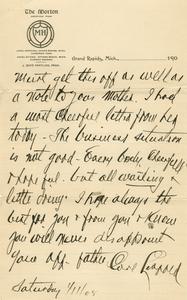 The Morton
MH
Grand Rapids, Mich., 190
Must get this off as well as
a note to your mother. I had
a most cheerful letter from her
to-day - The business situation
is not good - Every body cheerful
& hopeful - but all waiting a
little doing. I hope always the
best for you & from you & know
you will never disappoint
your aff. father Carl Leopold
Saturday 1/11/08